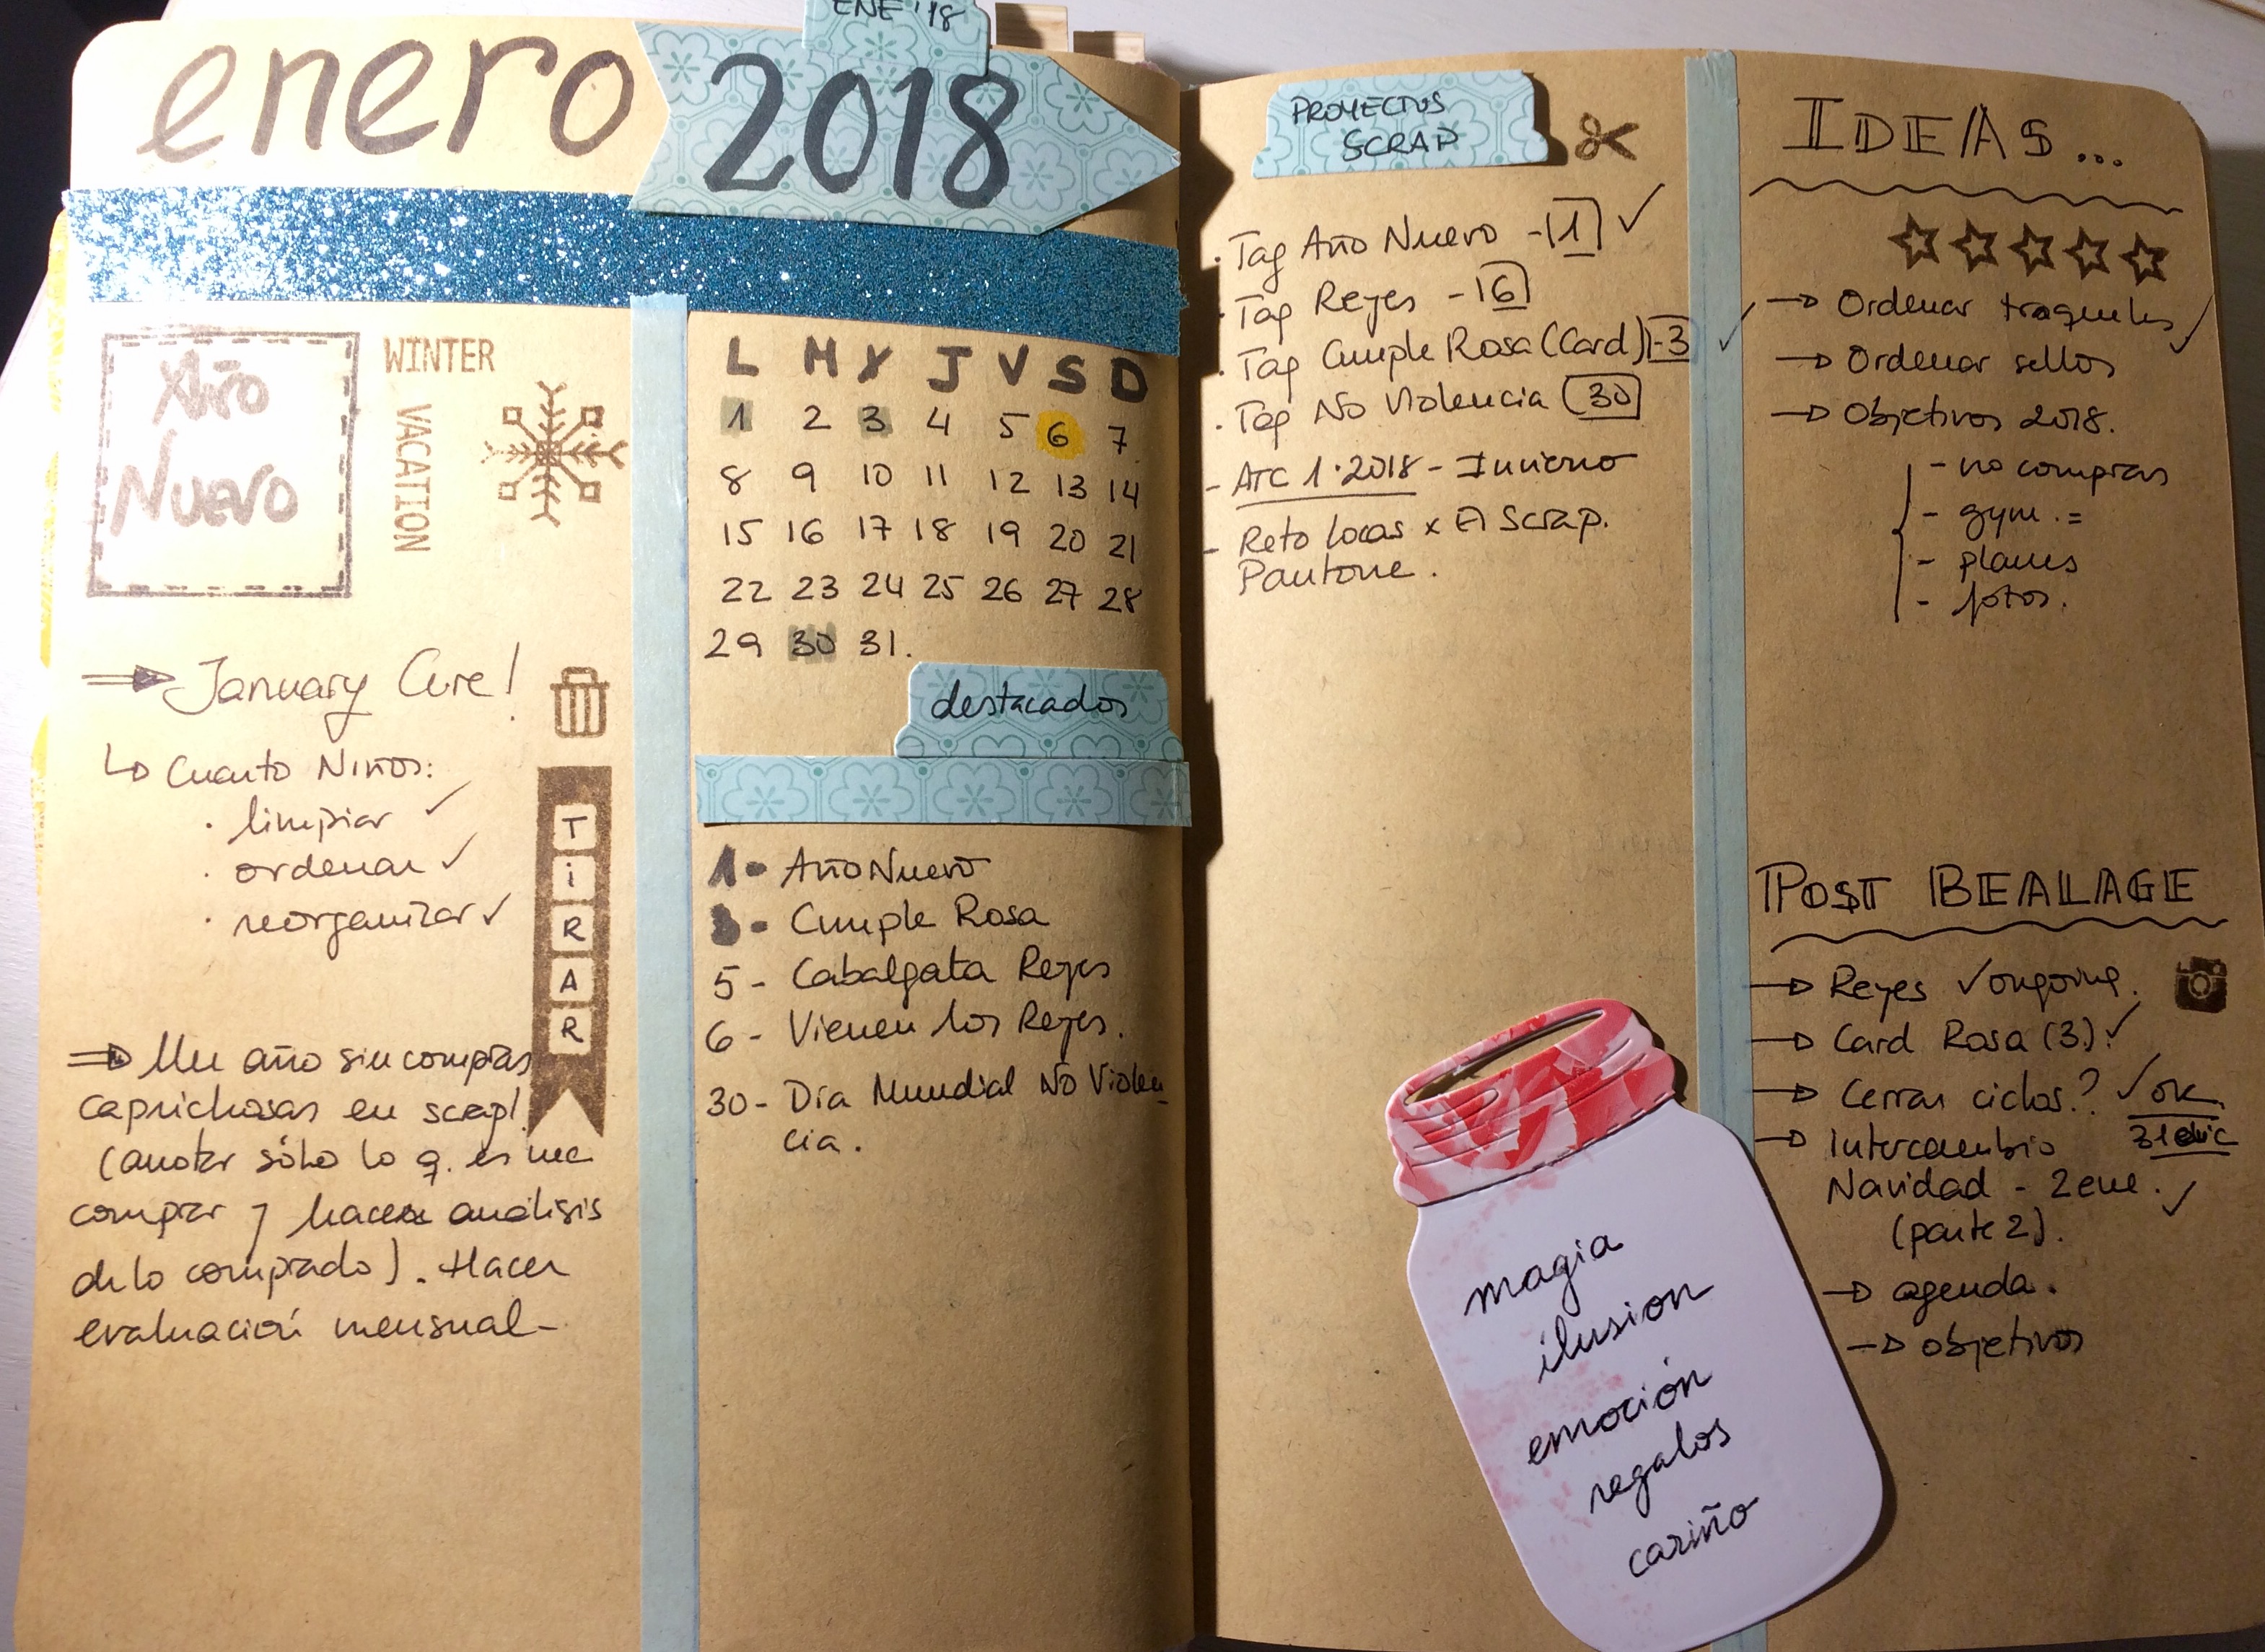 ENE '18
enero 2018
Año
Nuevo
WINTER
VACATION
January Cure!
Cuarto Niños:
· limpiar ✓
· ordenar ✓
· reorganizar ✓
TiRAR
Un año sin compras
caprichosas en scrap!
(anotar sólo lo q. es
comprar y hacer análisis
de lo comprado). Hacer
evaluación mensual-
L M X J V S D
1 2 3 4 5 6 7
8 9 10 11 12 13 14
15 16 17 18 19 20 21
22 23 24 25 26 27 28
29 30 31.
destacados
1- Año Nuevo
3- Cumple Rosa
5- Cabalgata Reyes
6- Vienen los Reyes.
30- Día Mundial No Violen
cia.
PROYECTOS
SCRAP
· Tag Año Nuevo - 1 ✓
· Tag Reyes - 6
· Tag Cumple Rosa (Card) - 3 ✓
· Tag No Violencia 30
- ATC 1·2018 - Invierno
- Reto locas x El Scrap.
Pantone.
magia
ilusion
emoción
regalos
cariño
IDEAS...
→ Ordenar troqueles ✓
→ Ordenar sellos
→ Objetivos 2018.
- no compras
- gym. =
- planes
- fotos.
POST BEALAGE
→ Reyes ✓ ongoing.
→ Card Rosa (3) ✓
→ Cerrar ciclos? ✓ OK
31 dic
→ Intercambio
Navidad - 2 ene. ✓
(parte 2).
→ agenda.
→ objetivos